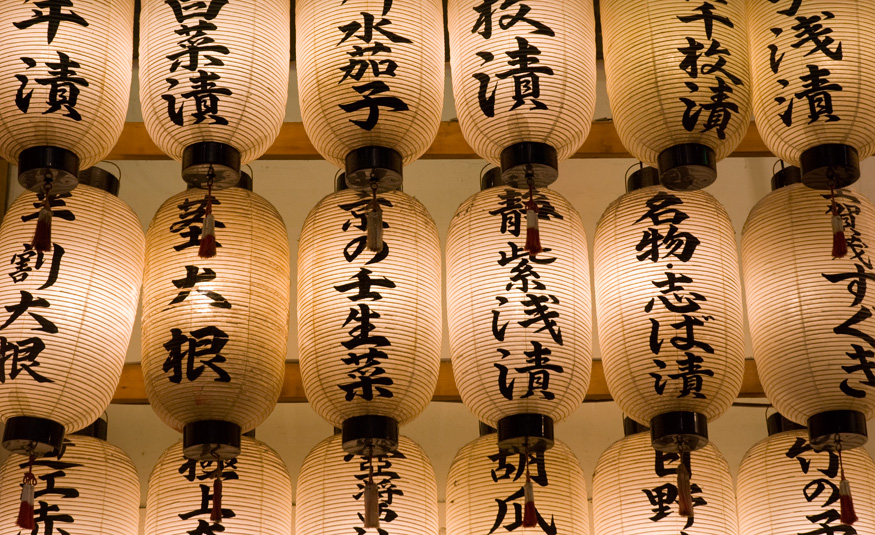 年漬
白菜漬
水茄子
枚漬
千枚漬
浅漬
割大根
茎大根
京の壬生菜
静紫浅漬
名物志ば漬
浅すぐき
極上
胡瓜
日野
竹の子